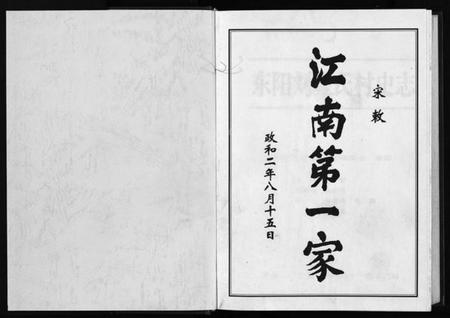 宋敕
江南第一家
政和二年八月十五日